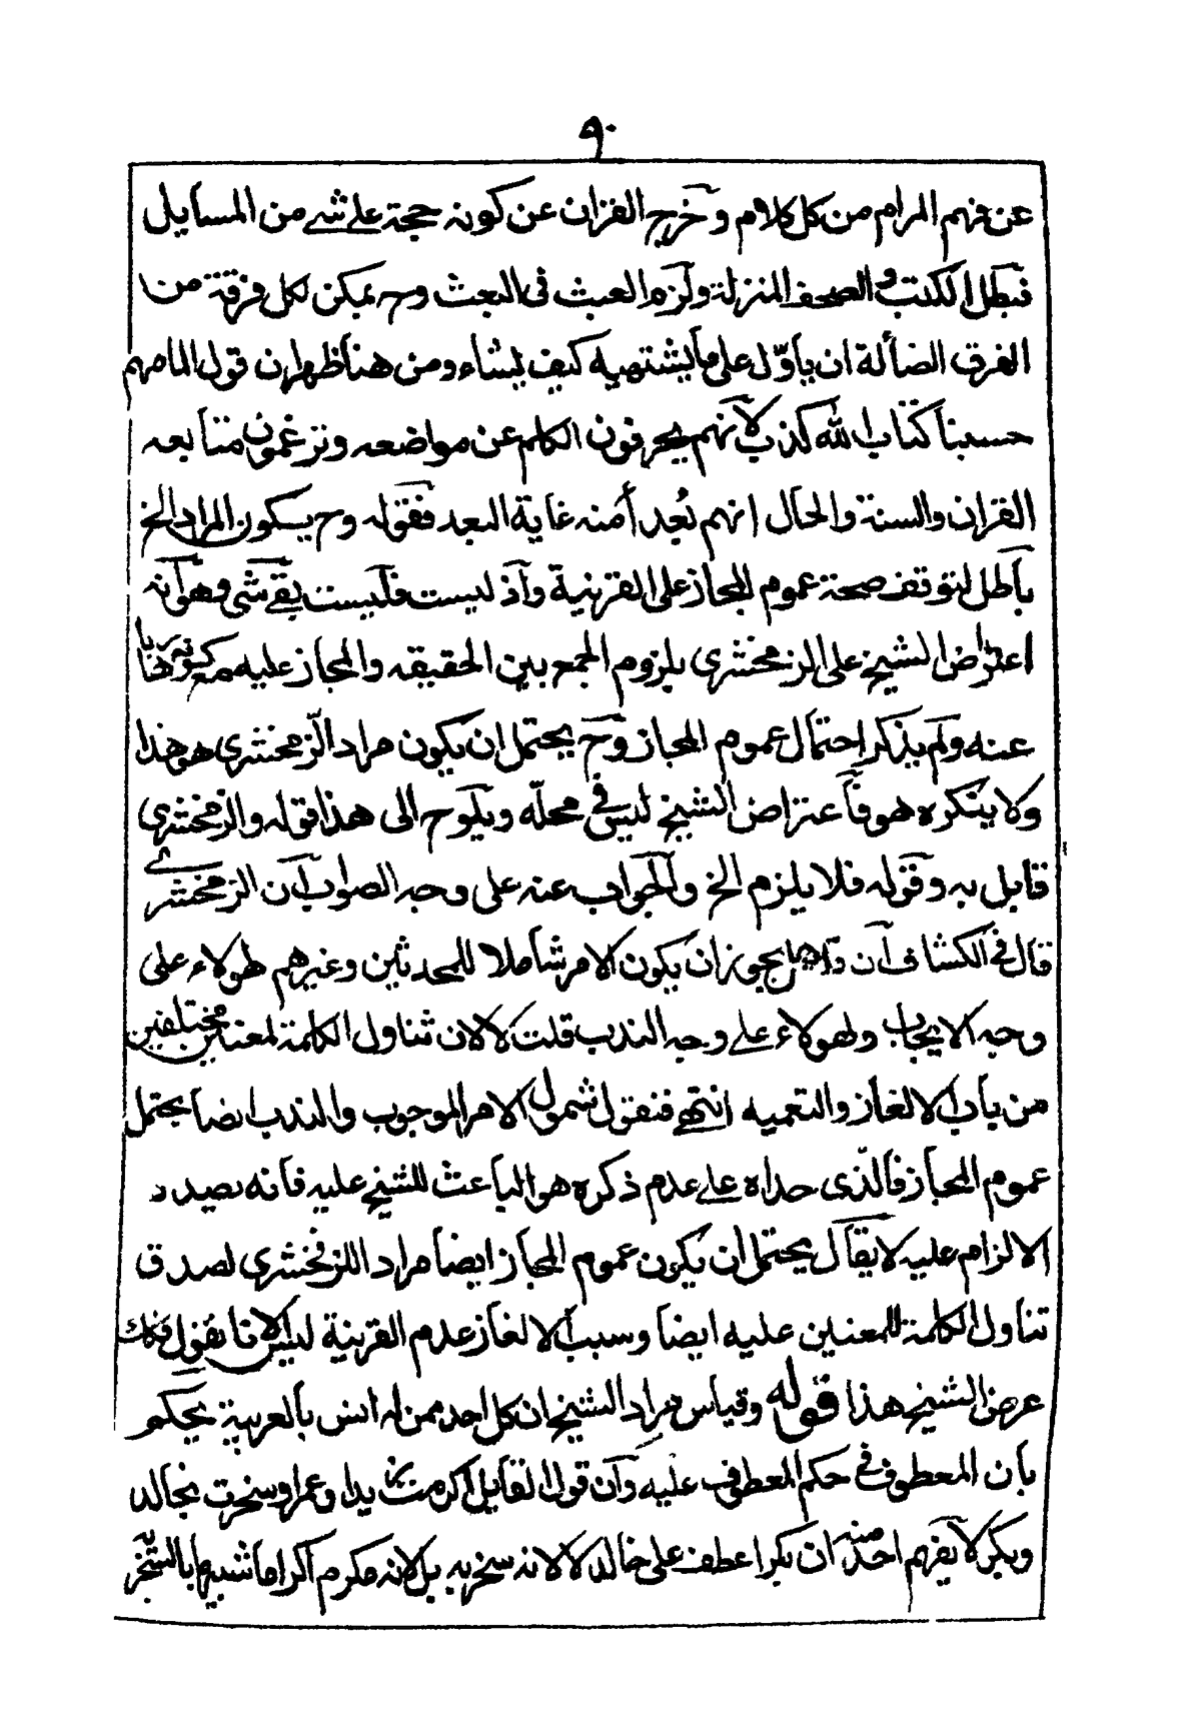 ٩٠
عن فهم المرام من كل كلام وخرج القران عن كونه حجة على شے من المسايل
فبطل الكتب والصحف المنزلة ولزم العبث فى البعث وح يمكن لكل فرقة من
الفرق الضالة ان ياوّل على ما يشتهيه كيف يشاء ومن هنا ظهر ان قول امامهم
حسبنا كتاب الله كذب لانهم يحرفون الكلم عن مواضعه وتزعمون متابعه
القران والسنة والحال انهم بُعد أمنه غاية البعد فقوله وح يكون المراد الخ
باطل لتوقف صحة عموم المجاز على القرينية وآذ ليست فليست بقے شى وهو آنه
اعتراض الشيخ على الزمخشرى يلزوم الجمع بين الحقيقه والمجاز عليه مع كونه هاربا
عنه ولم يذكر احتمال عموم المجاز وح يحتمل ان يكون مراد الزمخشرى هو هذا
ولا ينكره هو فآعتراض الشيخ ليس فى محلّه ويلوح الى هذا قوله والزمخشرى
قايل به وقوله فلا يلزم الخ والجواب عنه على وجه الصواب آن الزمخشرے
قال فى الكشاف آن قلت هل يجوز ان يكون الامر شاملا للمحدثين وغيرهم لهولاء على
وجه الايجاب ولهولاء على وجه الندب قلت لا لان تناول الكلمة لمعنيين مختلفين
من باب الالغاز والتعميه انتهى فنقول شمول الامر الموجوب والندب ايضا يحتمل
عموم المجاز فالّذى حداه على عدم ذكره هو الباعث للشيخ عليه فانه بصدد
الالزام عليه لا يقال يحتمل ان يكون عموم المجاز ايضا مراد اللزمخشرى لصدق
تناول الكلمة للمعنين عليه ايضا وسبب الالغاز عدم القرينية ليس الا نا نقول فذلك
غرض الشيخ هذا قوله وقياس مراد الشيخ ان كل احد ممن له انس بالعربية يحكم
بان المعطوف فى حكم المعطوف عليه وآن قول القايل اكرمت زيدا وعمرا وسخرت بخالد
وبكر لا يفهم احد منه ان بكرا عطف على خالد لا لانه سخر به بل لانه مكرم اكراما شبيها بالسخر